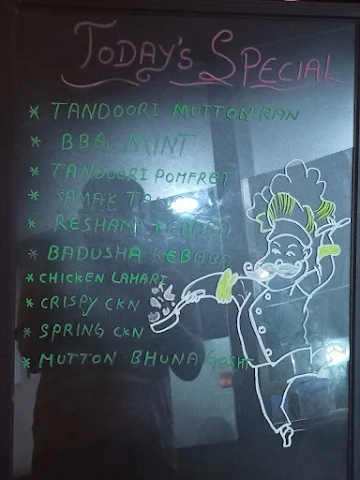 TODAY'S SPECIAL
* TANDOORI MUTTON RAN
* BBQ MINT
* TANDOORI POMFRET
* SAMAK
* RESHAMA KEBABA
* BADUSHA KEBABA
* CHICKEN LAHARI
* CRISPY CKN
* SPRING CKN
* MUTTON BHUNA GOSHT